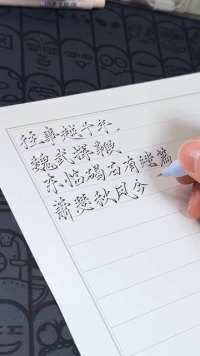 往事越千年，
魏武挥鞭
东临碣石有遗篇
萧瑟秋风今